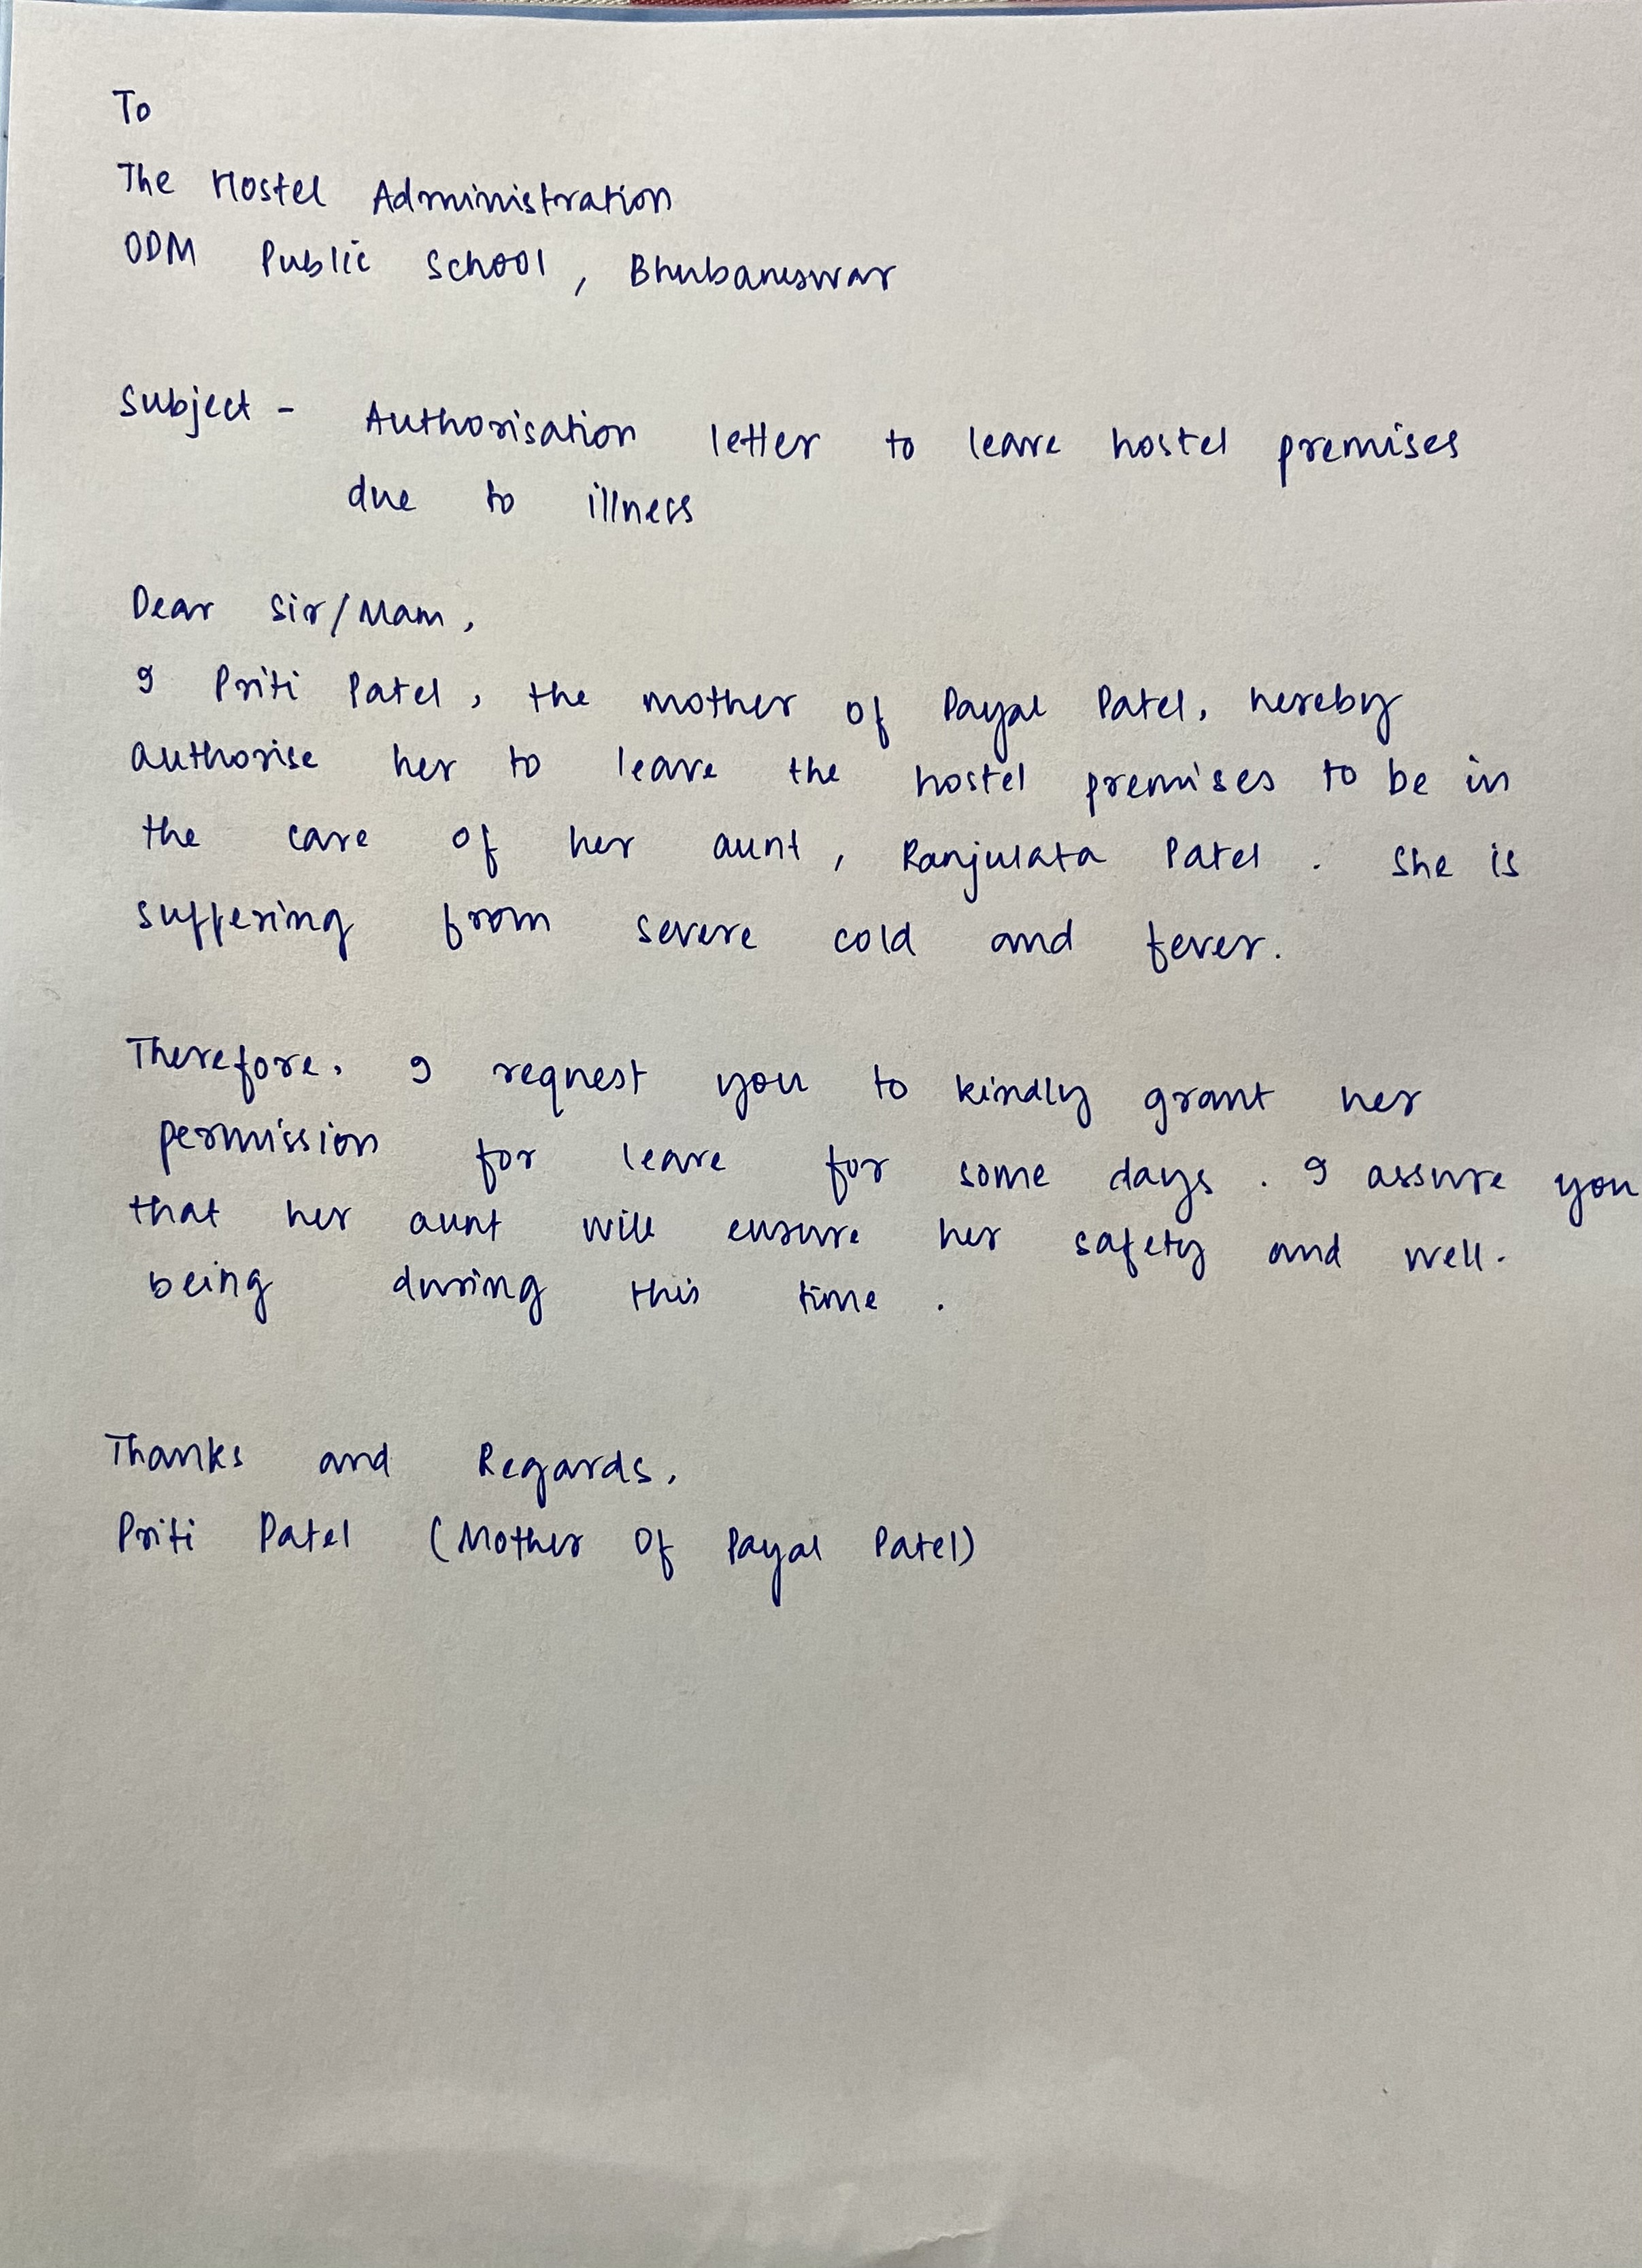 To
The Hostel Administration
ODM Public School, Bhubaneswar
Subject - Authorisation letter to leave hostel premises
due to illness
Dear Sir/Mam,
I Priti Patel, the mother of Payal Patel, hereby
authorise her to leave the hostel premises to be in
the care of her aunt, Ranjulata Patel. She is
suffering from severe cold and fever.
Therefore, I request you to kindly grant her
permission for leave for some days. I assure you
that her aunt will ensure her safety and well-
being during this time.
Thanks and Regards,
Priti Patel (Mother Of Payal Patel)